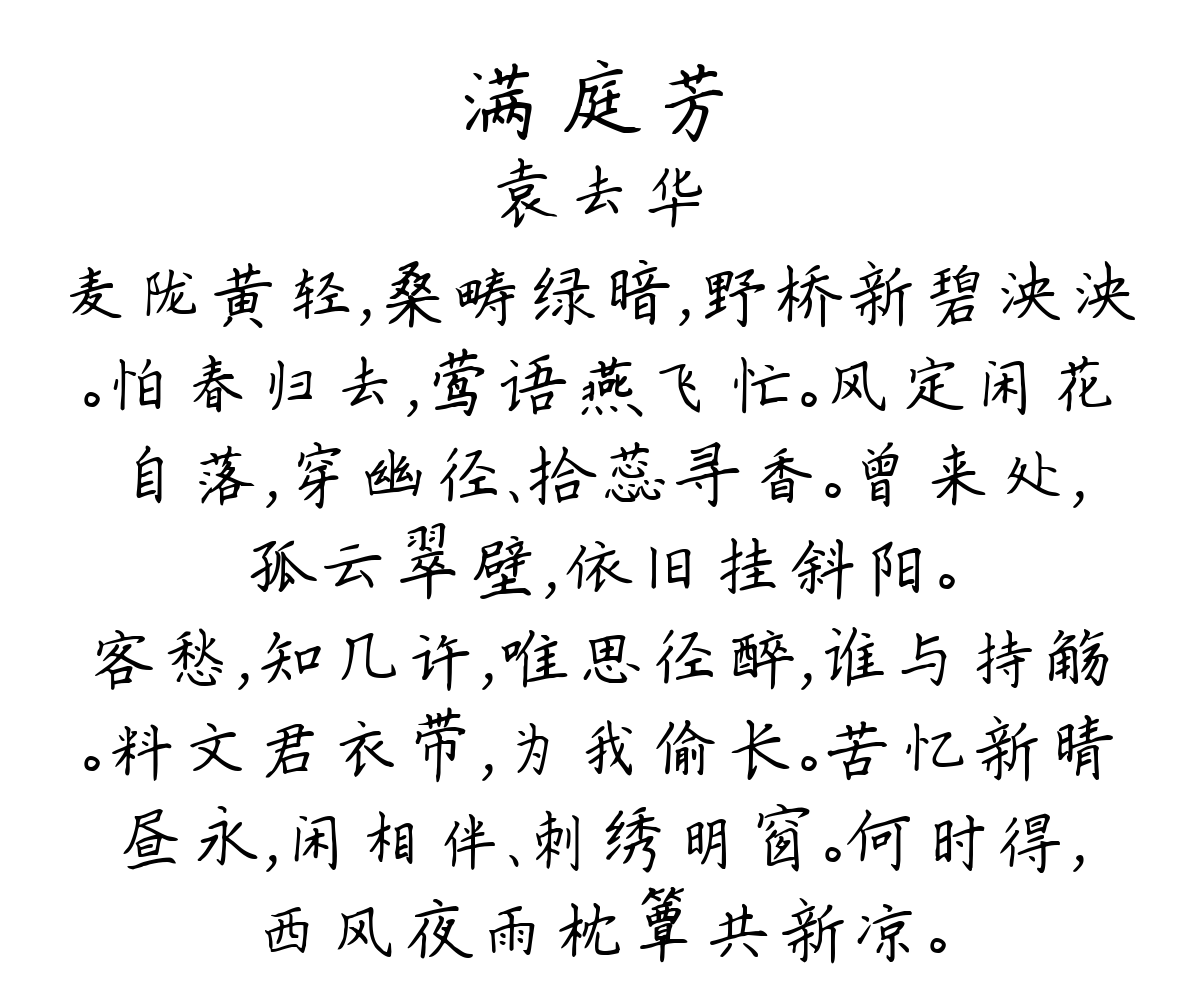 满庭芳
袁去华
麦陇黄轻,桑畴绿暗,野桥新碧泱泱
。怕春归去,莺语燕飞忙。风定闲花
自落,穿幽径、拾蕊寻香。曾来处,
孤云翠壁,依旧挂斜阳。
客愁,知几许,唯思径醉,谁与持觞
。料文君衣带,为我偷长。苦忆新晴
昼永,闲相伴、刺绣明窗。何时得,
西风夜雨枕簟共新凉。